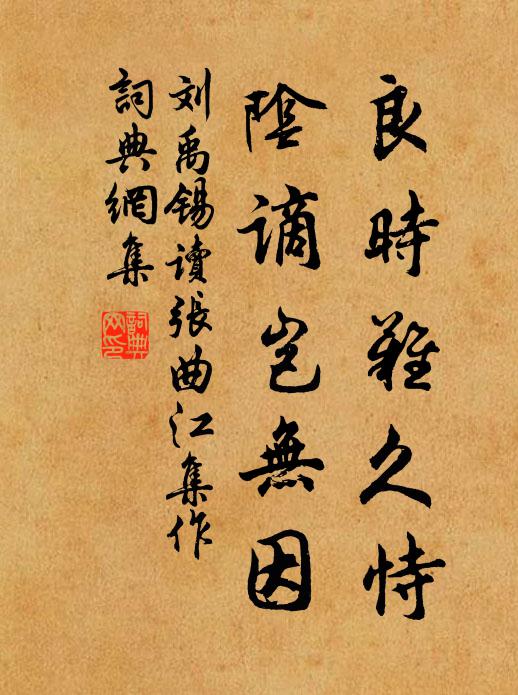 良時難久恃
陰謫岂無因
刘禹錫讀張曲江集作
詞典網集
詞典
网印